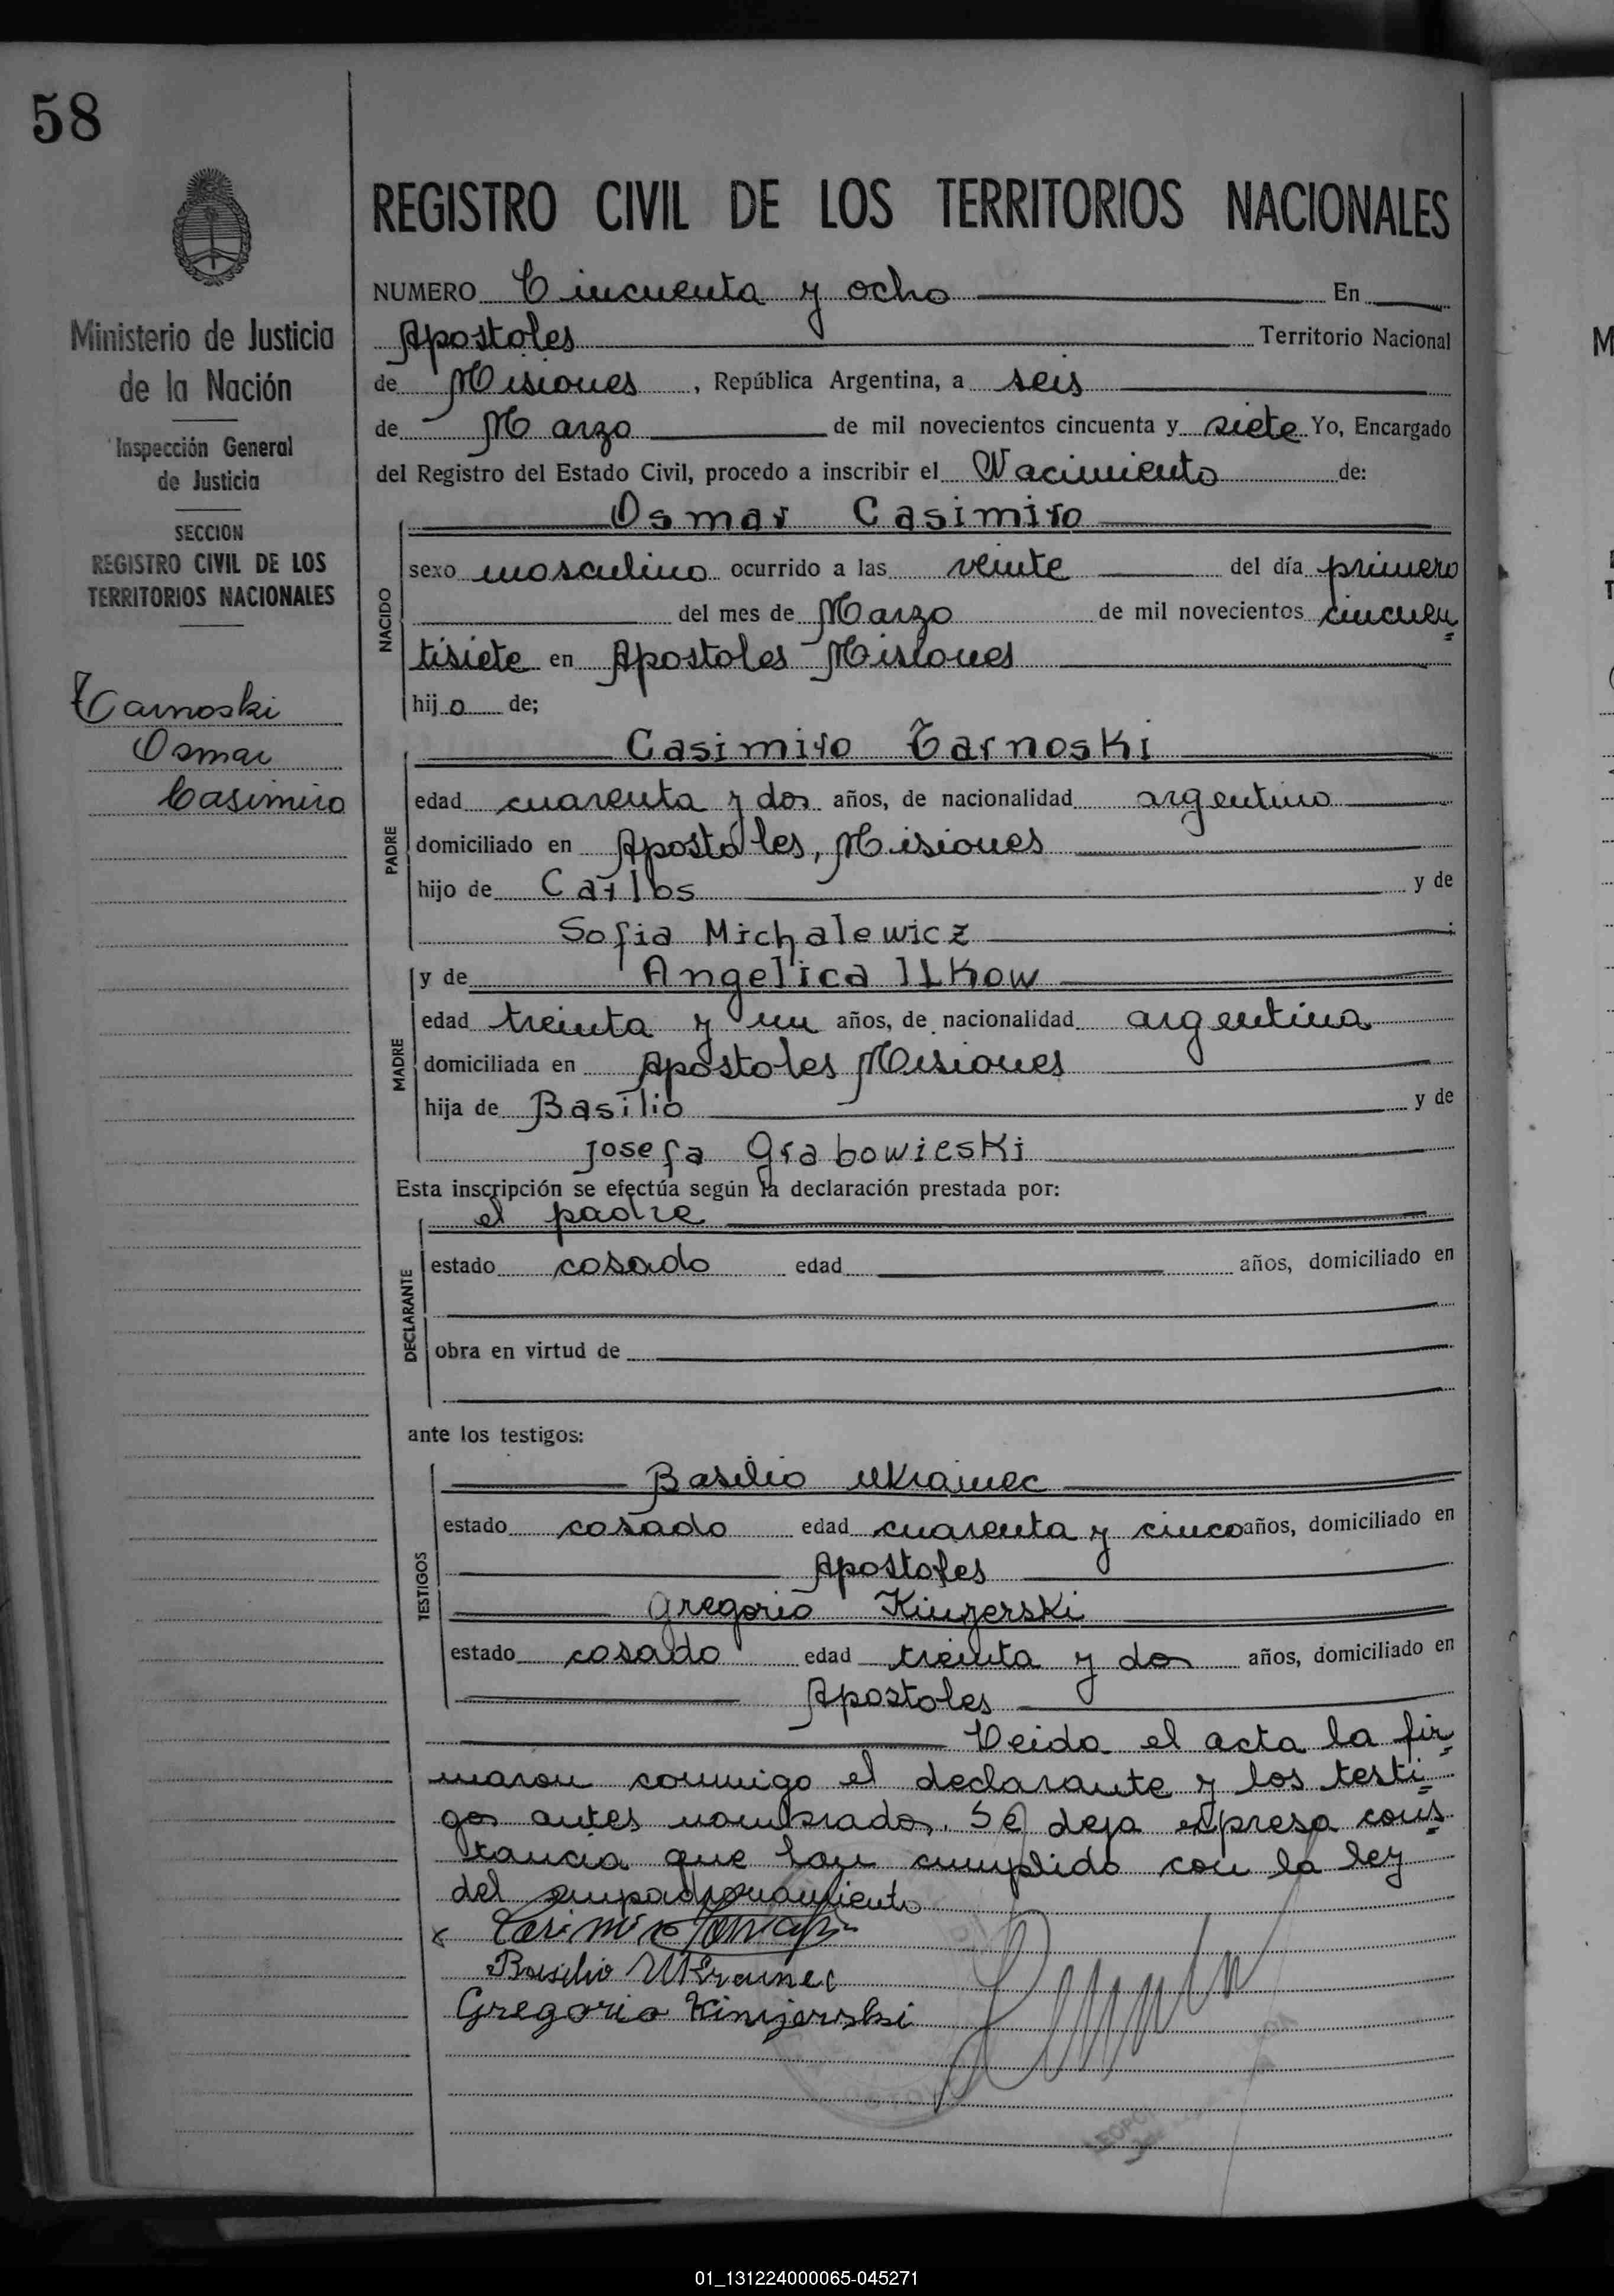 58
Ministerio de Justicia
de la Nación
Inspección General
de Justicia
SECCION
REGISTRO CIVIL DE LOS
TERRITORIOS NACIONALES
Tarnoski
Osmar
Casimiro
REGISTRO CIVIL DE LOS TERRITORIOS NACIONALES
NUMERO Cincuenta y ocho En
Apostoles Territorio Nacional
de Misiones, República Argentina, a seis
de Marzo de mil novecientos cincuenta y siete Yo, Encargado
del Registro del Estado Civil, procedo a inscribir el Nacimiento de:
NACIDO
Osmar Casimiro
sexo masculino ocurrido a las veinte del día primero
del mes de Marzo de mil novecientos cincuen
tisiete en Apostoles Misiones
hijo de;
PADRE
Casimiro Tarnoski
edad cuarenta y dos años, de nacionalidad argentino
domiciliado en Apostoles, Misiones
hijo de Carlos y de
Sofia Michalewicz ;
MADRE
y de Angelica Ilkow
edad treinta y un años, de nacionalidad argentina
domiciliada en Apostoles Misiones
hija de Basilio y de
Josefa Grabowieski
Esta inscripción se efectúa según la declaración prestada por:
DECLARANTE
el padre
estado casado edad años, domiciliado en
obra en virtud de
ante los testigos:
TESTIGOS
Basilio Ukrainec
estado casado edad cuarenta y cinco años, domiciliado en
Apostoles
Gregorio Kinyerski
estado casado edad treinta y dos años, domiciliado en
Apostoles
Leida el acta la fir
maron conmigo el declarante y los testi
gos antes nombrados. Se deja expresa cons
tancia que han cumplido con la ley
del empadronamiento
Basilio Ukrainec
Gregorio Kinjerski
01_131224000065-045271